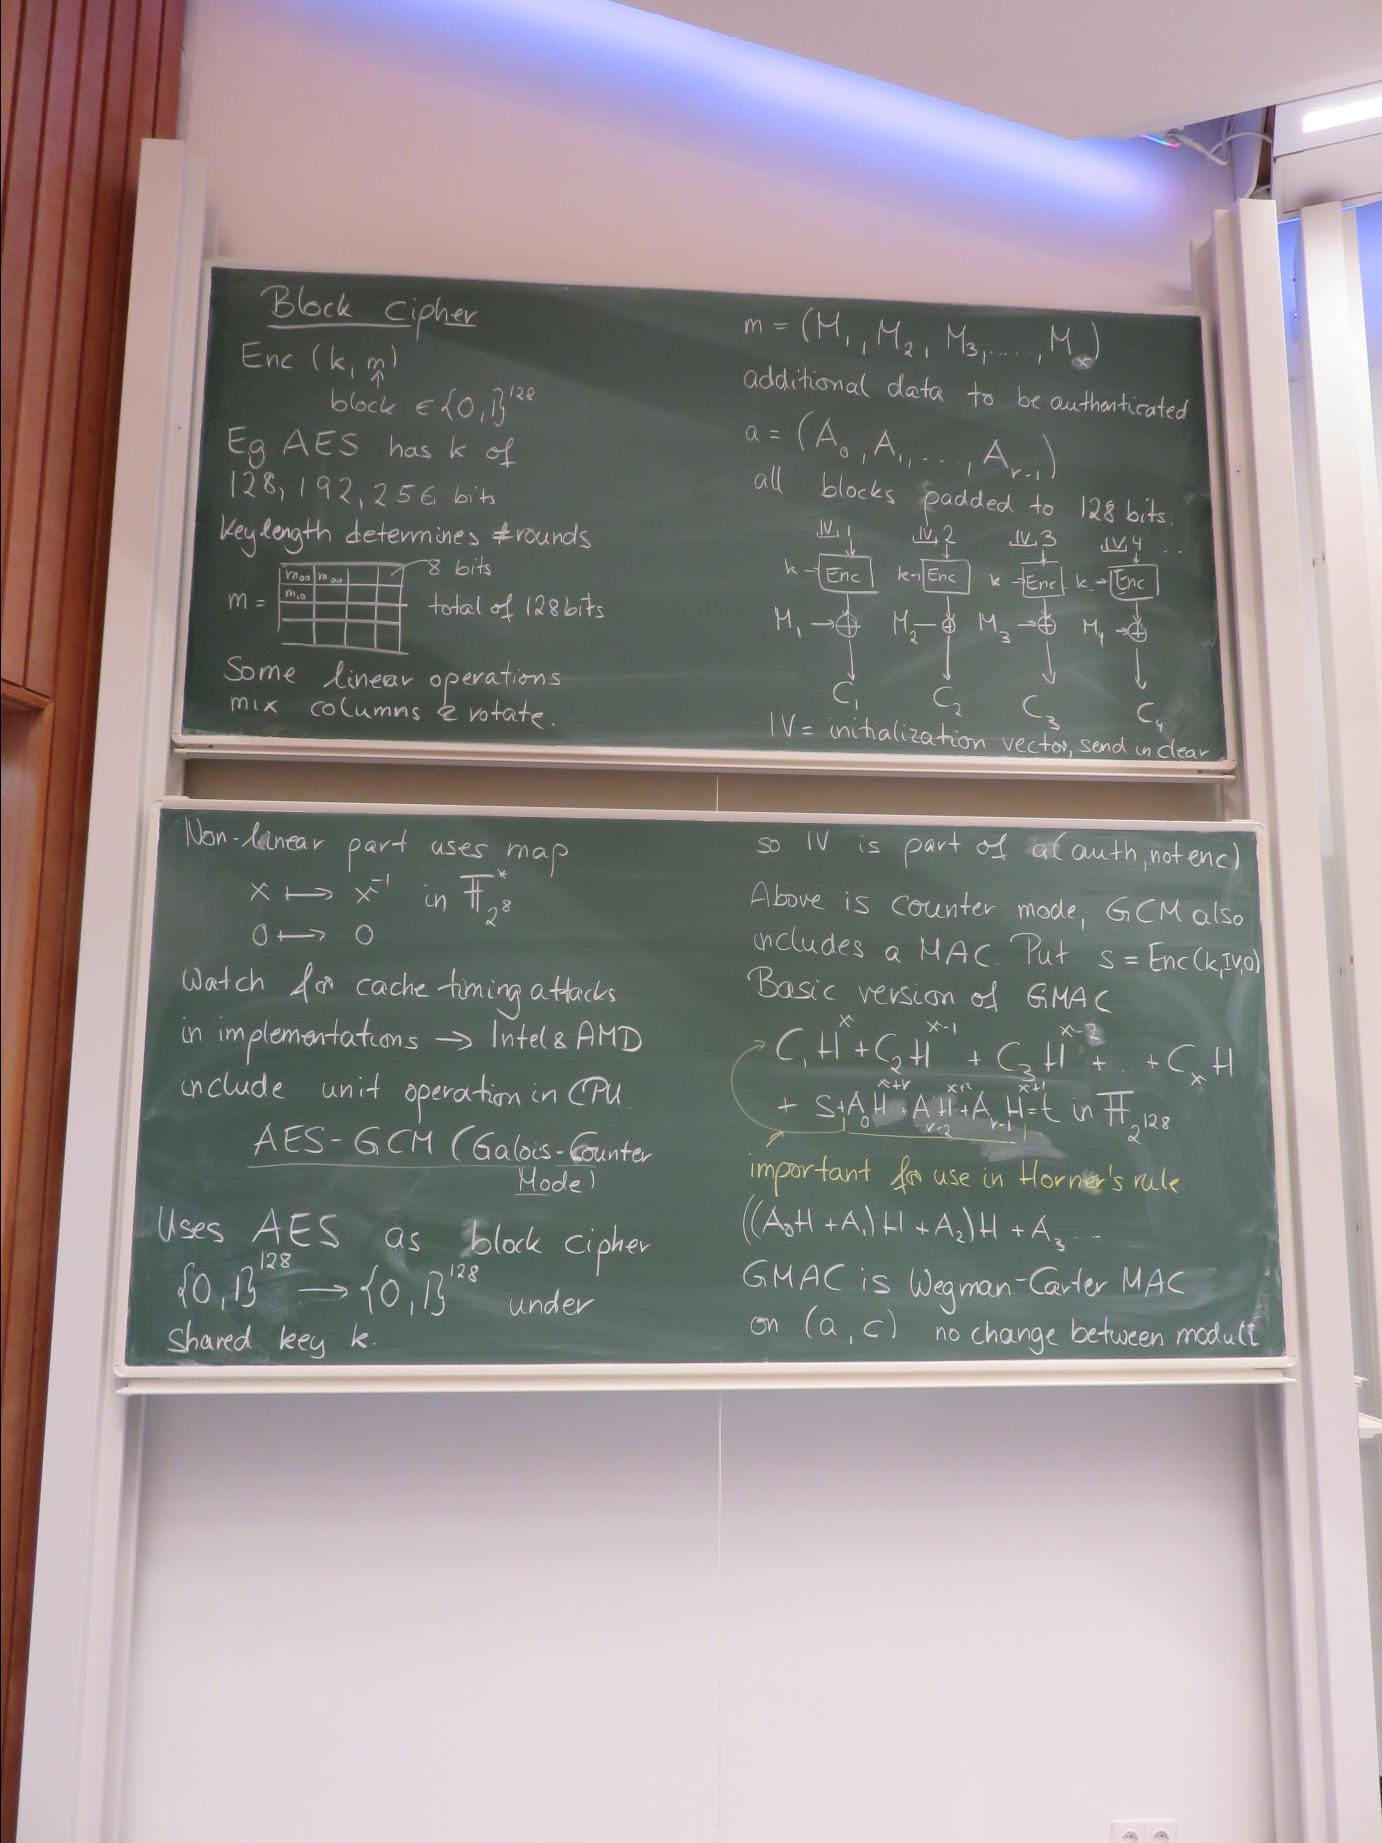 Block cipher
Enc (k, m)
↑
block ∈ {0,1}^128
Eg AES has k of
128, 192, 256 bits
Key length determines #rounds
8 bits
m =
m00 m01
m10
total of 128 bits
Some linear operations
mix columns & rotate.
Non-linear part uses map
x ↦ x^-1 in F*_2^8
0 ↦ 0
Watch for cache timing attacks
in implementations → Intel & AMD
include unit operation in CPU.
AES-GCM (Galois-Counter
Mode)
Uses AES as block cipher
{0,1}^128 → {0,1}^128 under
shared key k.
m = (M_1, M_2, M_3, ...., M_x)
additional data to be authenticated
a = (A_0, A_1, ...., A_r-1)
all blocks padded to 128 bits.
IV,1 IV,2 IV,3 IV,4 ..
k → Enc k → Enc k → Enc k → Enc
M_1 → ⊕ M_2 — ⊕ M_3 → ⊕ M_4 → ⊕
C_1 C_2 C_3 C_4
IV = initialization vector, send in clear
so IV is part of a (auth, not enc)
Above is counter mode, GCM also
includes a MAC. Put s = Enc(k, IV,0)
Basic version of GMAC
C_1 H^x + C_2 H^x-1 + C_3 H^x-2 + ... + C_x H
+ s + A_0 H^x+r + A_r-2 H^x+2 + A_r-1 H^x+1 = t in F_2^128
important for use in Horner's rule
((A_0H + A_1)H + A_2)H + A_3 ...
GMAC is Wegman-Carter MAC
on (a, c) no change between moduli